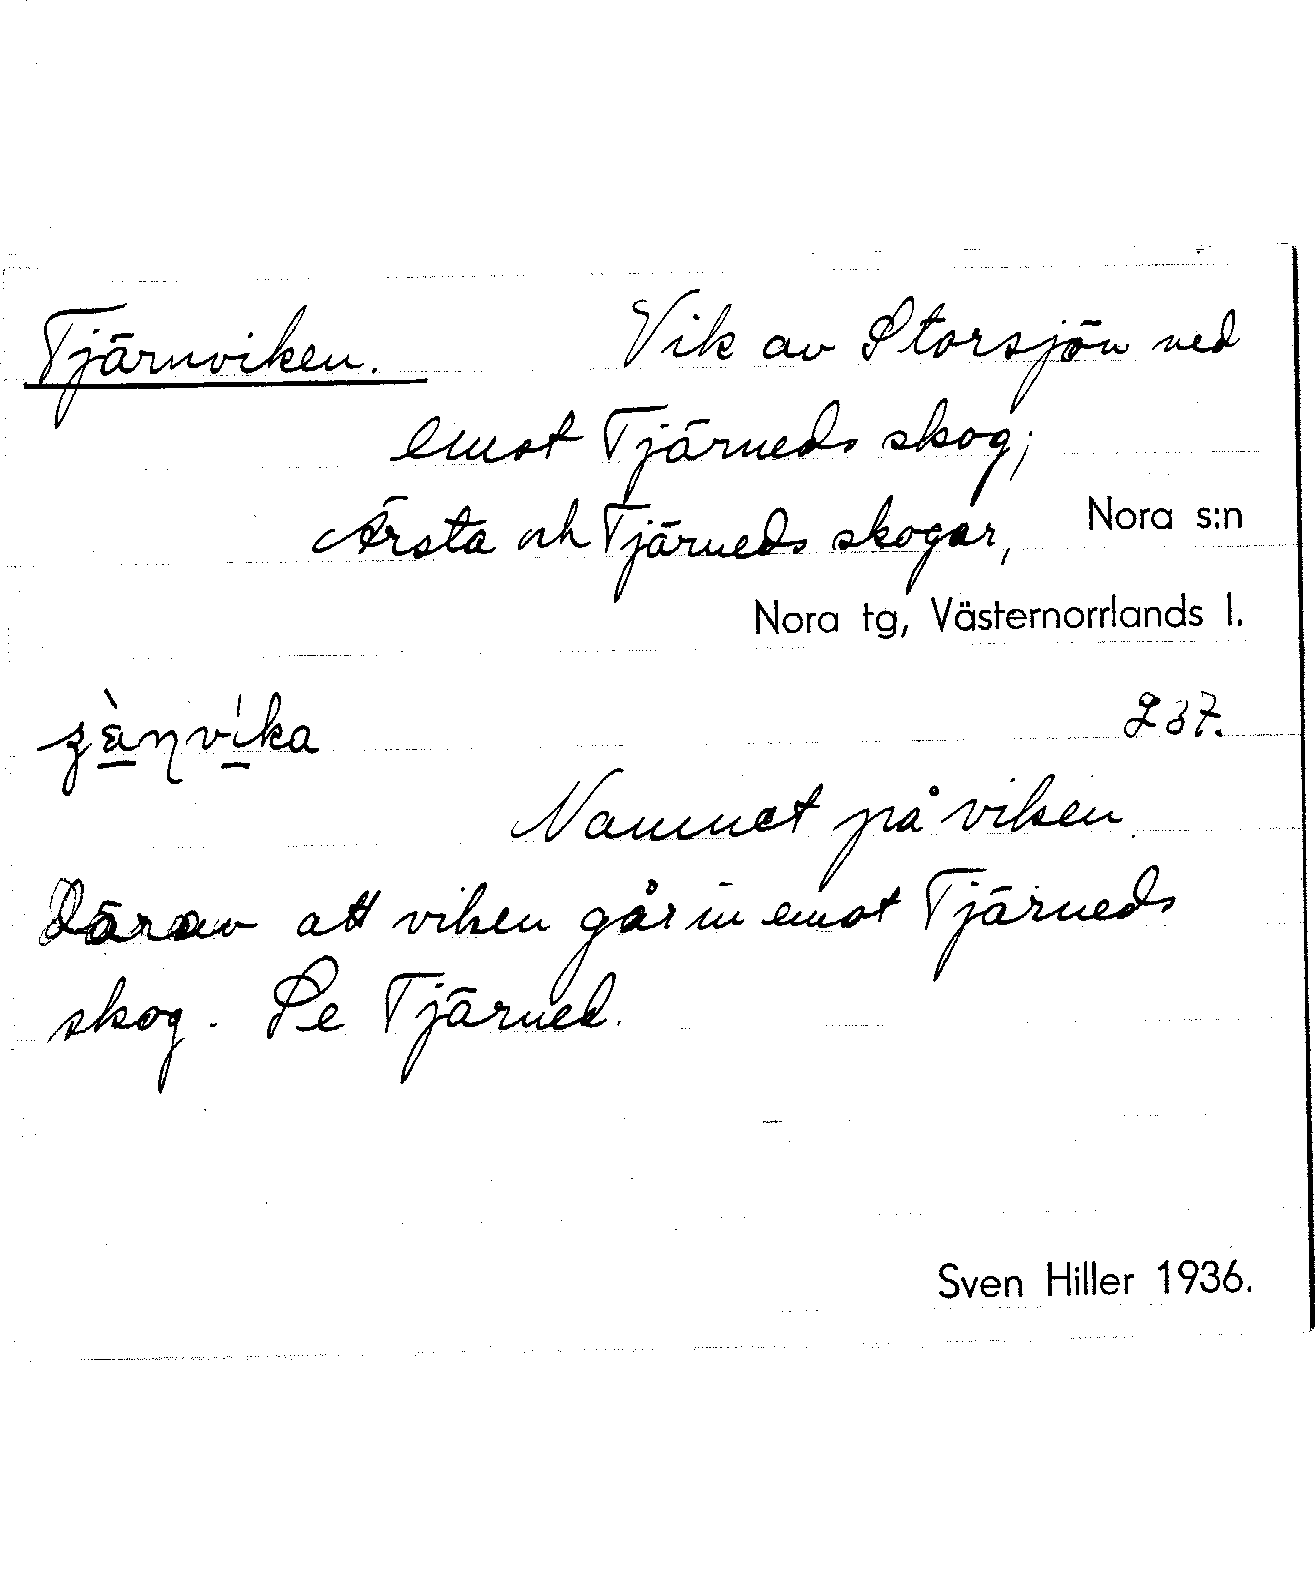 Tjärnviken. Vik av Storsjön ned
emot Tjärneds skog;
Ärsta och Tjärneds skogar, Nora s:n
Nora tg, Västernorrlands l.
237.
Namnet på viken
Därav att viken går in emot Tjärneds
skog. Se Tjärned.
Sven Hiller 1936.